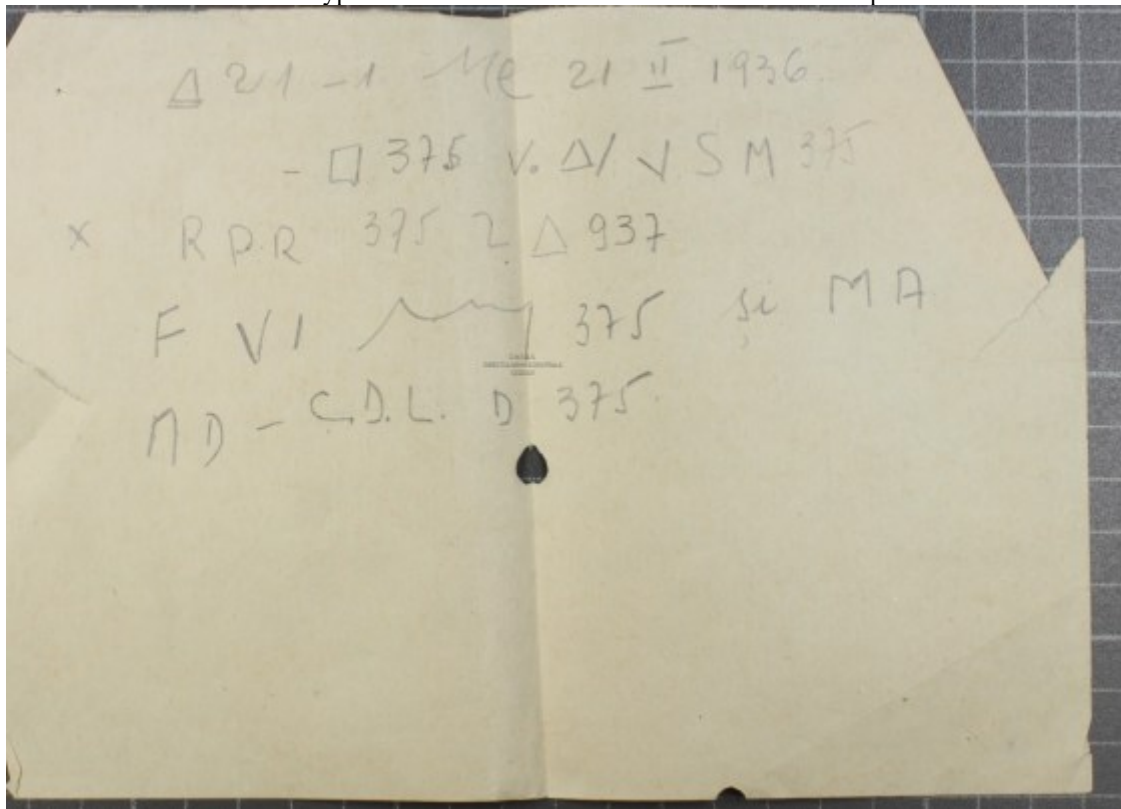 △ 21 - 1 Me 21 II 1936.
- □ 375 V. △/ V S M 375
x R P.R 375 2 △ 937
F VI 375 și M A
M D - C.D.L. D 375.